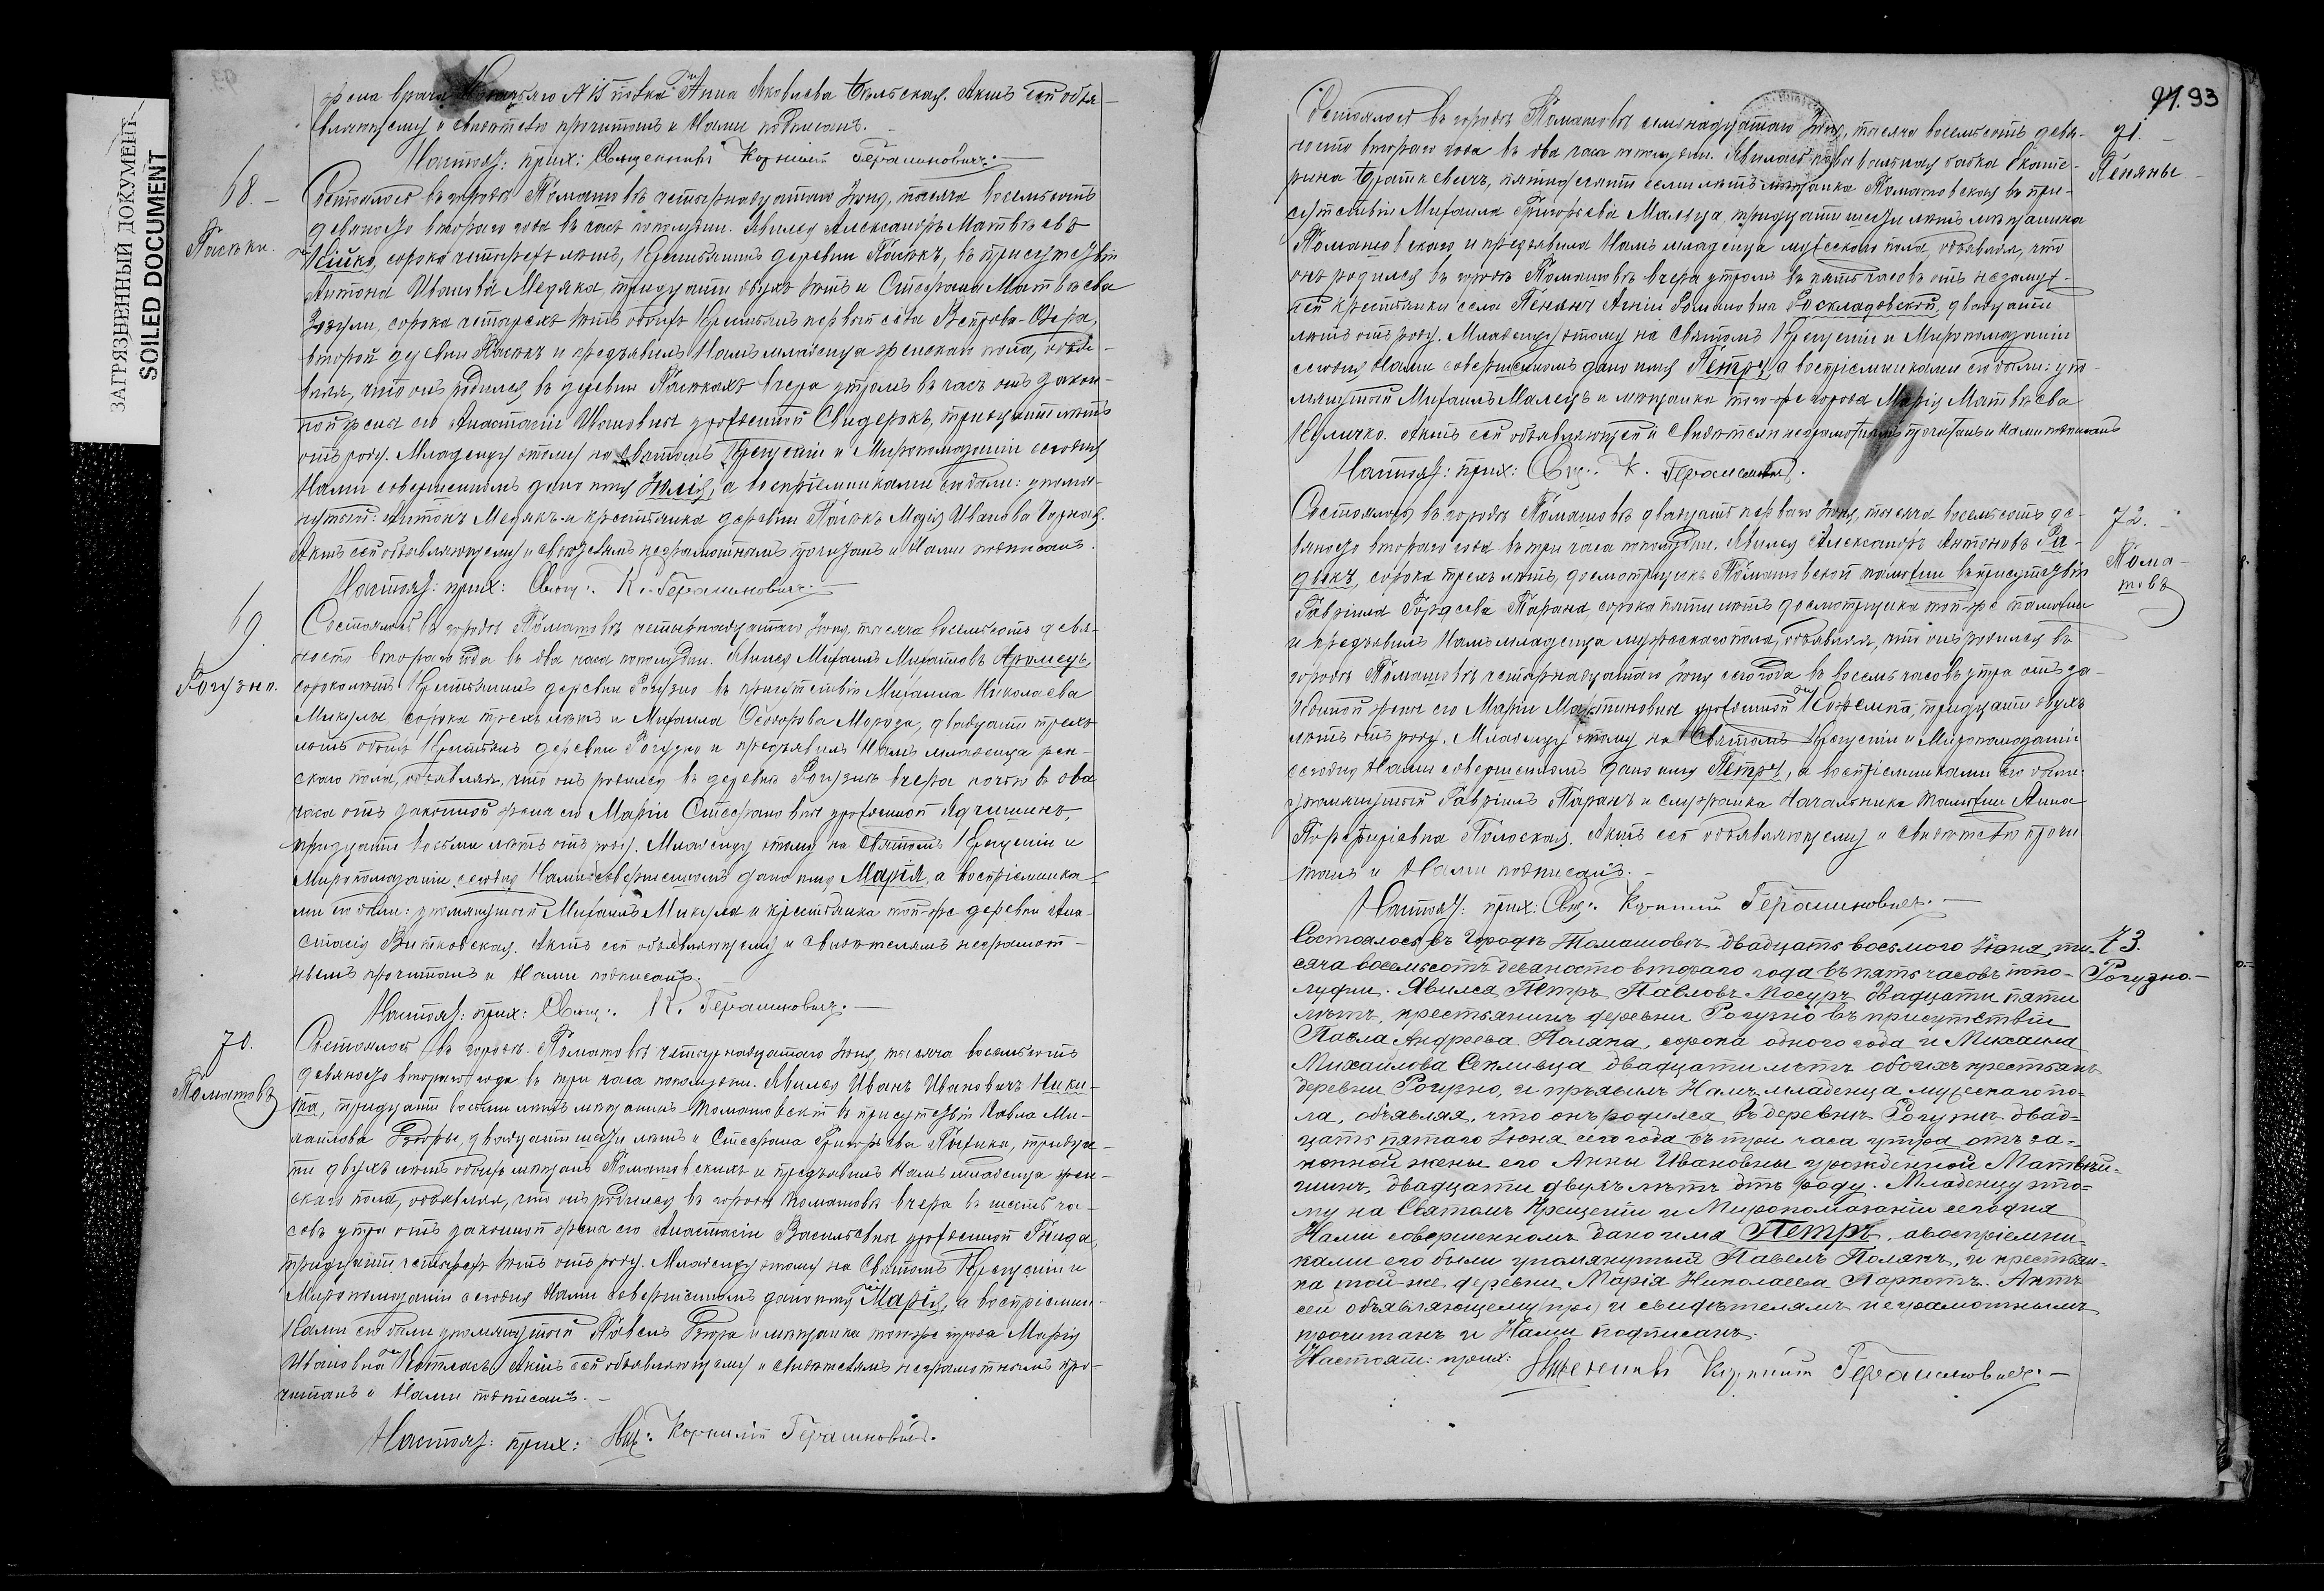 ЗАГРЯЗНЕННЫЙ ДОКУМЕНТ
SOILED DOCUMENT
жена врача Анна Яковлева Бѣльская. Актъ сей объя-
вляющему и свидѣтелю прочитанъ и Нами подписанъ.
Настоят: прих: Священникъ Корнилій Герасимовичъ.
68.
Пасѣки.
Состоялось въ городѣ Томашовѣ четырнадцатаго Іюня, тысяча восемьсотъ
девяносто втораго года въ часъ пополудни. Явился Александръ Матвѣевъ
сорока четырехъ лѣтъ, крестьянинъ деревни Пасѣкъ, въ присутствіи
Антона Иванова Медяка, тридцати двухъ лѣтъ и Стефана Матвѣева
Зозули, сорока четырехъ лѣтъ обоихъ крестьянъ первый села
второй деревни Пасѣкъ и предъявилъ Намъ младенца женскаго пола, объя-
вляя, что онъ родился въ деревни Пасѣкахъ вчера утромъ въ часъ отъ закон-
ной жены его Анастасіи Ивановны урожденной Сидерокъ, тридцати лѣтъ
отъ роду. Младенцу этому на Святомъ Крещеніи и Миропомазаніи сегодня
Нами совершенномъ дано имя Юлія, а воспріемниками его были: упомя-
нутый: Антонъ Медякъ и крестьянка деревни Пасѣкъ Марія Иванова Чорная.
Актъ сей объявляющему и свидѣтелямъ неграмотнымъ прочитанъ и Нами подписанъ.
Настоят: прих: Свящ: К. Герасимовичъ.
69.
Рогузно.
Состоялось въ городѣ Томашовѣ четырнадцатаго Іюня, тысяча восемьсотъ девя-
носто втораго года въ два часа пополудни. Явился Михаилъ Михайловъ
сорокалѣтъ крестьянинъ деревни Рогузно въ присутствіи Михаила Николаева
Микулы сорока трехъ лѣтъ и Михаила Ѳедорова Мороза, двадцати трехъ
лѣтъ обоихъ крестьянъ деревни Рогузно и предъявилъ Намъ младенца жен-
скаго пола, объявляя, что онъ родился въ деревнѣ Рогузнѣ вчера ночью въ два
часа отъ законной жены его Маріи Стефановны урожденной Ядчишинъ,
тридцати восьми лѣтъ отъ роду. Младенцу этому на Святомъ Крещеніи и
Миропомазаніи сегодня Нами совершенномъ дано имя Марія, а воспріемника-
ми его были: упомянутый Михаилъ Микула и крестьянка той-же деревни Ана-
стасія Витковская. Актъ сей объявляющему и свидѣтелямъ неграмот-
нымъ прочитанъ и Нами подписанъ.
Настоят: прих: Свящ: К. Герасимовичъ.
70.
Томашовъ
Состоялось въ городѣ Томашовѣ четырнадцатаго Іюня, тысяча восемьсотъ
девяносто втораго года въ три часа пополудни. Явился Иванъ Ивановичъ Ники-
та, тридцати восьми лѣтъ мѣщанинъ Томашовскій въ присутствіи Павла Ми-
хайлова двадцати шести лѣтъ и Стефана Григорьева тридца-
ти двухъ лѣтъ обоихъ мѣщанъ Томашовскихъ и предъявилъ Намъ младенца жен-
скаго пола, объявляя, что онъ родился въ городѣ Томашовѣ вчера въ шесть ча-
совъ утра отъ законной жены его Анастасіи Васильевны урожденной Гнида,
тридцати четырехъ лѣтъ отъ роду. Младенцу этому на Святомъ Крещеніи и
Миропомазаніи сегодня Нами совершенномъ дано имя Марія, а воспріемни-
ками его были упомянутый Павелъ и мѣщанка того-же города Марія
Ивановна Актъ сей объявляющему и свидѣтелямъ неграмотнымъ про-
читанъ и Нами подписанъ.
Настоят: прих: Свящ: Корнилій Герасимовичъ.
93
71.
Пеняны
Состоялось въ городѣ Томашовѣ семнадцатаго Іюня, тысяча восемьсотъ девя-
носто втораго года въ два часа пополудни. Явилась повивальная бабка Екате-
рина пятидесяти семи лѣтъ мѣщанка Томашовская въ при-
сутствіи Михаила Григорьева Мальца, тридцати шести лѣтъ мѣщанина
Томашовскаго и предъявила Намъ младенца мужескаго пола, объявляя, что
онъ родился въ городѣ Томашовѣ вчера утромъ въ пять часовъ отъ незамуж-
ней крестьянки села Пенянъ Агніи Романовны Роскладовской, двадцати
лѣтъ отъ роду. Младенцу этому на Святомъ Крещеніи и Миропомазаніи
сегодня Нами совершенномъ дано имя Петръ, а воспріемниками его были: упо-
мянутый Михаилъ Малецъ и мѣщанка того-же города Марія Матвѣева
Куличко. Актъ сей объявляющей и свидѣтелямъ неграмотнымъ прочитанъ и Нами подписанъ
Настоят: прих: Свщ: К. Герасимовичъ.
72.
Тома-
шовъ
Состоялось въ городѣ Томашовѣ двадцать перваго Іюня, тысяча восемьсотъ де-
вяносто втораго года въ три часа пополудни. Явился Александръ Антоновъ Ра-
дикъ, сорока трехъ лѣтъ, досмотрщикъ Томашовской таможни въ присутствіи
Гавріила Тарана, сорока пяти лѣтъ досмотрщика той-же таможни
и предъявилъ Намъ младенца мужескаго пола, объявляя, что онъ родился въ
городѣ Томашовѣ четырнадцатаго Іюня сего года въ восемь часовъ утра отъ за-
конной жены его Маріи Мартиновны урожденной тридцати двухъ
лѣтъ отъ роду. Младенцу этому на Святомъ Крещеніи и Миропомазаніи
сегодня Нами совершенномъ дано имя Петръ, а воспріемниками его были:
упомянутый Гавріилъ Таранъ и служанка Начальника Таможни Анна
Порфиріевна Полоская. Актъ сей объявляющему и свидѣтелю прочи-
танъ и Нами подписанъ.
Настоят: прих: Свщ: Корнилій Герасимовичъ.
73.
Рогузно.
Состоялось въ Городѣ Томашовѣ двадцать восьмого Іюня, ты-
сяча восемьсотъ девяносто втораго года въ пять часовъ попо-
лудни. Явился Петръ Павловъ Мосуръ двадцати пяти
лѣтъ, крестьянинъ деревни Рогузно въ присутствіи
Павла Андреева Поляка, сорока одного года и Михаила
Михаилова Сепливца двадцати лѣтъ обоихъ крестьянъ
деревни Рогузно, и пръявилъ Намъ младенца мужескаго по-
ла, объявляя, что онъ родился въ деревнѣ Рогузнѣ двад-
цать пятаго Іюня сего года въ три часа утра отъ за-
конной жены его Анны Ивановны урожденной Матвѣй-
шинъ, двадцати двухъ лѣтъ отъ роду. Младенцу это-
му на Святомъ Крещеніи и Миропомазаніи сегодня
Нами совершенномъ дано имя Петръ, а воспріемни-
ками его были упомянутый Павелъ Полякъ, и крестьян-
ка той же деревни Марія Николаева Паркотъ. Актъ
сей объявляющему и свидѣтелямъ неграмотнымъ
прочитанъ и Нами подписанъ.
Настоят: прих: Священникъ Корнилій Герасимовичъ.